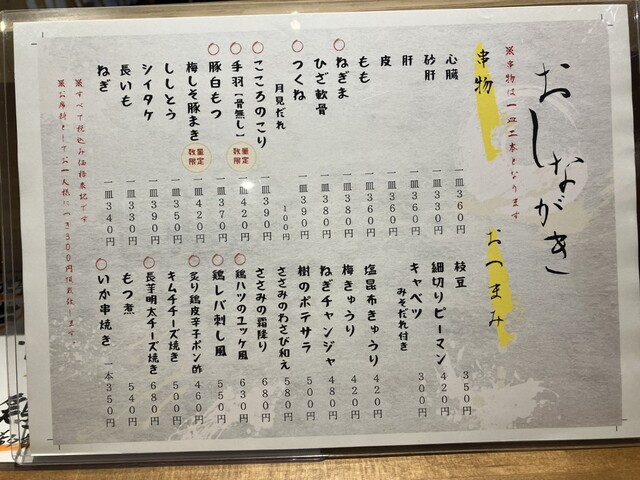 おしながき
串物
※串物は一皿二本となります
心臓 一皿360円
砂肝 一皿330円
肝 一皿340円
皮 一皿340円
もも 一皿360円
○ねぎま 一皿380円
ひざ軟骨 一皿380円
○つくね 一皿390円
月見だれ 100円
○こころのこり 一皿390円
○手羽[骨無し] 数量限定 一皿420円
○豚白もつ 一皿370円
梅しそ豚まき 数量限定 一皿420円
ししとう 一皿350円
シイタケ 一皿390円
長いも 一皿330円
ねぎ 一皿340円
おつまみ
枝豆 350円
細切りピーマン 420円
キャベツ 300円
みそだれ付き
塩昆布きゅうり 420円
梅きゅうり 420円
ねぎチャンジャ 480円
樹のポテサラ 500円
ささみのわさび和え 580円
ささみの霜降り 680円
○鶏ハツのユッケ風 630円
○鶏レバ刺し風 550円
○炙り鶏皮辛子ポン酢 460円
キムチチーズ焼き 500円
○長芋明太チーズ焼き 680円
もつ煮 540円
○いか串焼き 一本350円
※すべて税込み価格表記です
※お席料としてお一人様につき300円頂戴致します